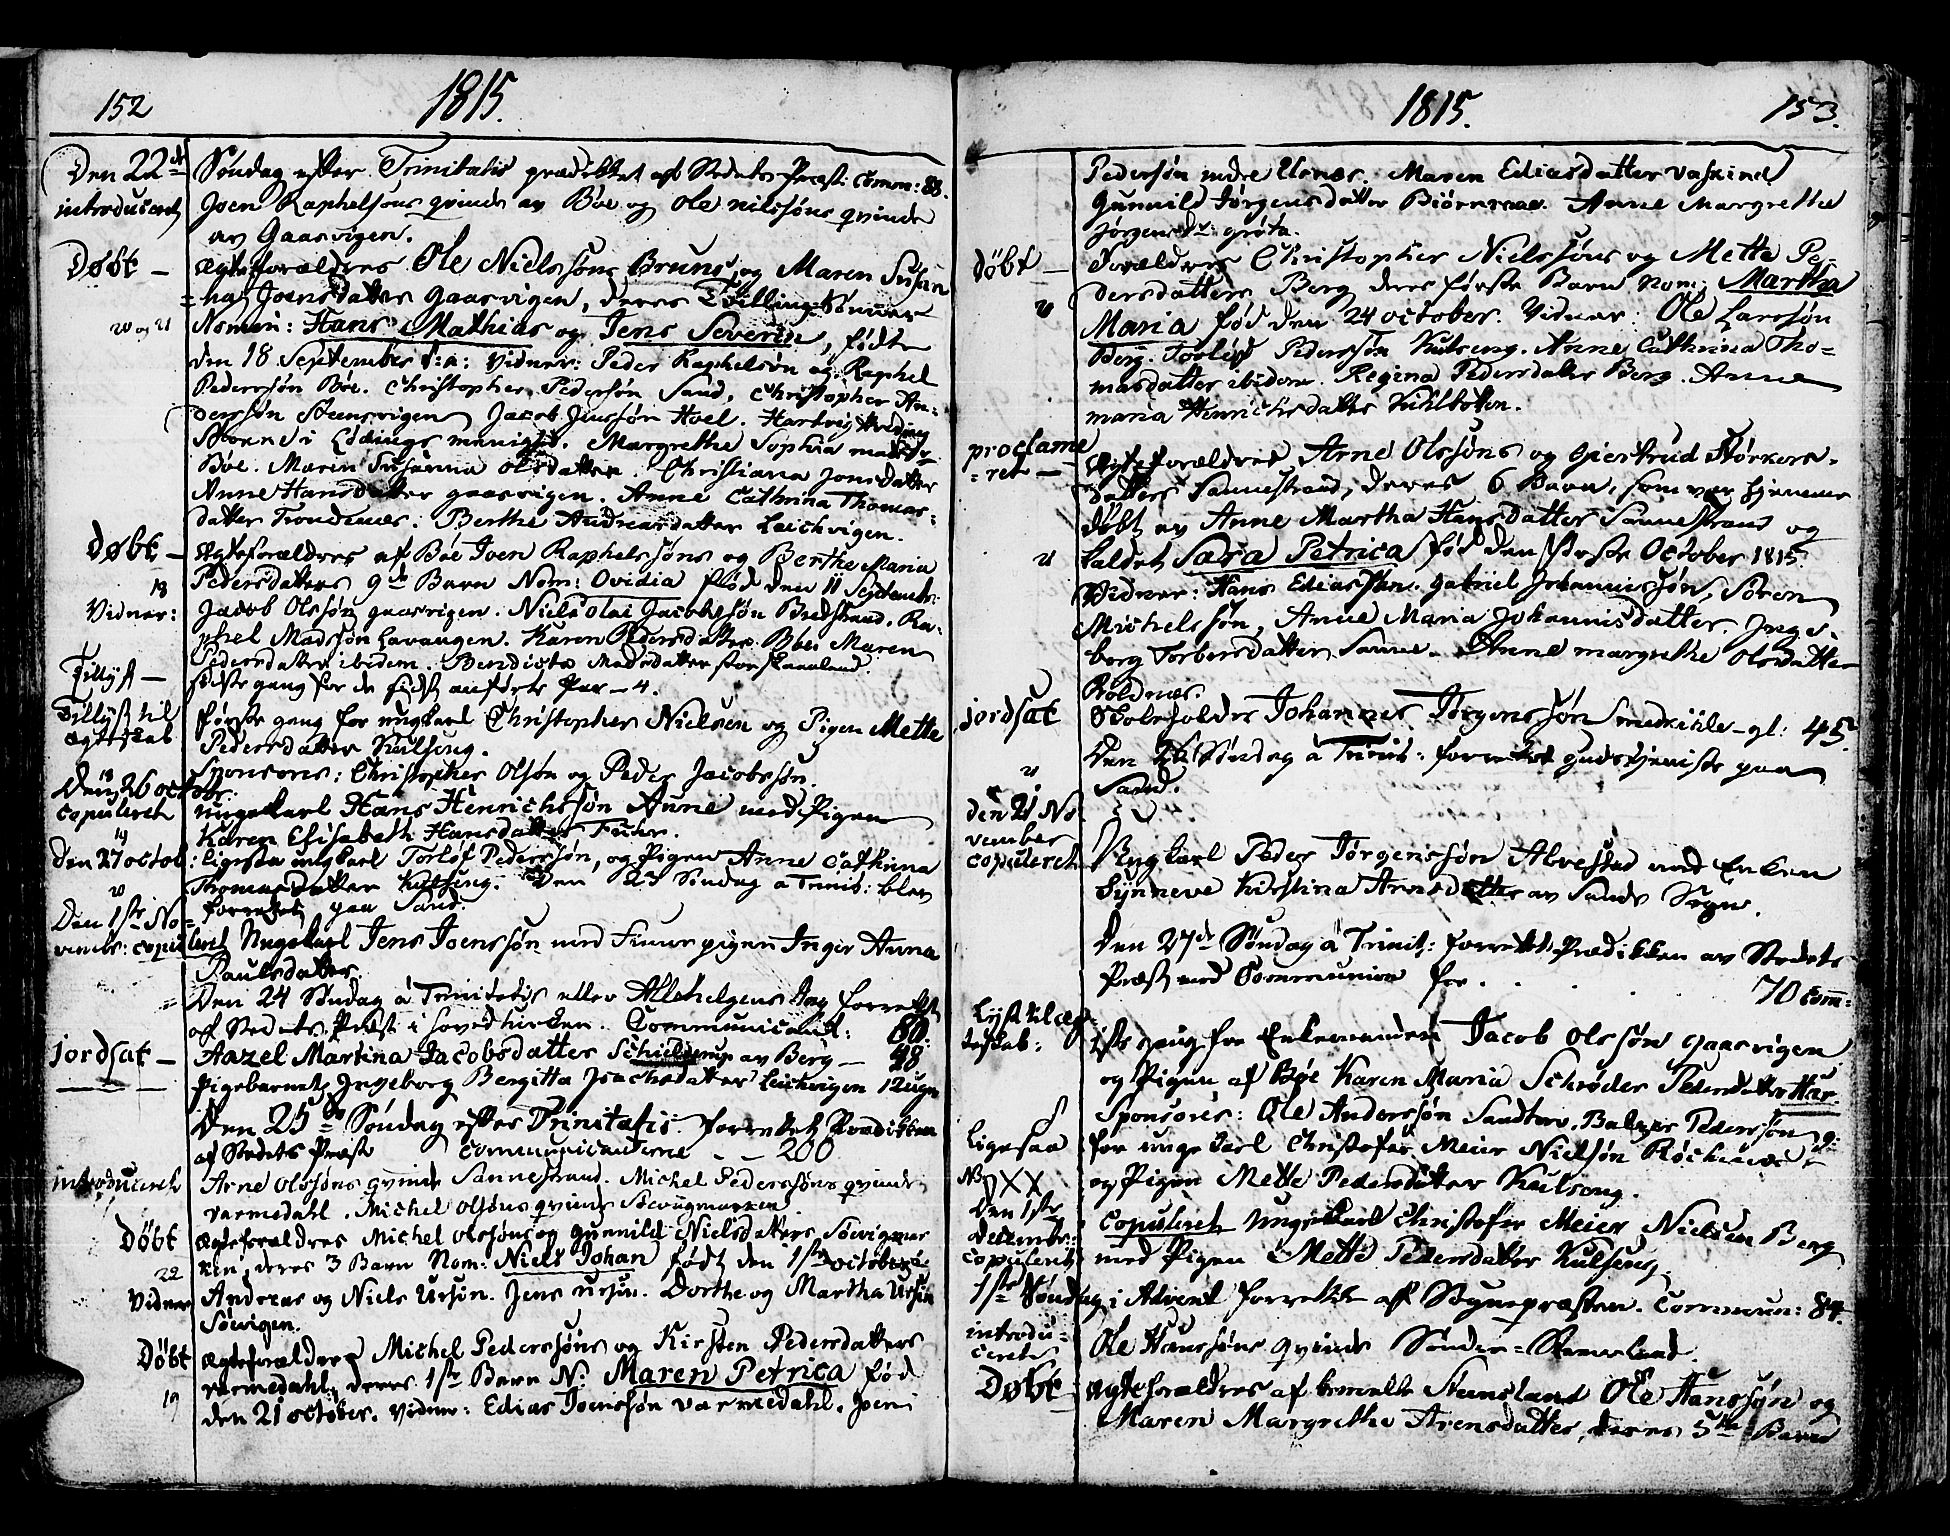 152
1815.
Den 22de Søndag efter Trinitatis prædikket af Stedets Præst: Comm: 88.
introduceret Joen Raphelsøns qvinde av Bøe og Ole Nilssøns qvinde
av Gaasvigen.
Døbt – Ægteforældres Ole Nielssøns Bruns, og Maren Susan
=na Joensdatters Gaasvigen, deres Tvilling-Sønner
20 og 21 Nomin: Hans Mathias og Jens Severin, fødte
den 18 September d:a: Vidner: Peder Raphelsøn og Raphel
Pederssøn Bøe. Christopher Pedersøn Sand, Christopher An-
derssøn Steensvigen Jacob Jenssøn Hoel. Hartvig
i Lødings menighed. Margrethe Sophia
Bøe. Maren Susanna Olsdatter. Christiana Jonsdatter
Anne Hansdatter gaasvigen. Anne Cathrina Thomas-
datter Trondenæs. Berthe Andreasdatter Leichvigen.
Døbt – Ægteforældres af Bøe Joen Raphelssøns og Berthe Maria
18 Pedersdatters 9de Barn Nom: Ovidia fød den 11 Septembr:
Vidner: Jacob Olssøn gaasvigen. Niels Olai Jacobssøn Bredstrand. Ra-
phel Madssøn Lavangen. Karen Pedersdatter Bøe. Maren
Pedersdatter ibidem. Bendicte Madsdatter
Tillyst – sidste gang for de sidst anførte Par – 4.
Tillyst til første gang for ungkarl Christopher Nielsen og Pigen Mette
ægteskab Pedersdatter Kulseng.
Sponsores: Christopher Olsøn og Peder Jacobssøn.
18
Den 26 october
copuleret ungekarl Hans Henrichssøn Aune med Pigen
Karen Elisabeth Hansdatter
19
Den 27 octob: ligesaa ungkarl Torlof Pederssøn, og Pigen Anne Cathrina
Thomasdatter Kulseng. Den 23 Søndag a Trinit: blev
forrettet paa Sand.
Den 1ste No-
vembr: copuleret Ungekarl Jens Joenssøn med pigen Inger Anna
Paulsdatter
Den 24 Søndag á Trinitatis eller Allehelgens Dag forrettet
af Stedets Præst i hovedkirken. Communicant: 80.
jordsat – Aazel Martina Jacobsdatter Schielderup av Berg – 48
Pigebarnet Ingeborg Bergitta Isachsdatter Leichvigen 12 ugr
Den 25de Søndag efter Trinitatis forrettet Prædikken
af Stedets Præst Communicanterne – – 200
introduceret Arne Olssøns qvinde Sannestrand. Michel Pederssøns qvinde
varmedahl. Michel Olsøns qvinde
Døbt Ægteforældres Michel Olssøns og Gunnild Nielsdatters
22 ken, deres 3 Barn Nom: Niels Johan født den 1ste october
Vidner Andreas og Niels Ursøn. Jens Ursin. Dorthe og Martha Ursin
Søvigen.
Døbt Ægteforældres Michel Pederssøns og Kirsten Pedersdatters
varmedahl, deres 1ste Barn N: Maren Petrica fød
19 den 21 october. Vidner: Edias Joenssøn varmedahl. Joen
1815.
153.
Pedersøn indre Elenæs. Maren Ediasdatter Vaskind
Gunnild Jørgensdatter Biørnnæs. Anne Margrethe
Jørgensdr: grøta.
døbt – Forældres Christopher Nielssøns og Mette Pe-
dersdatters Berg deres første Barn Nom: Martha
Maria fød den 24 october. Vidner: Ole Larssøn
Berg. Torlof Pederssøn Kulseng. Anne Cathrina Tho=
masdatter ibidem. Regina Pedersdatter Berg. Anne
maria Henrichsdatter
proclame
=ret – Ægteforældres Arne Olssøns og Giertrud Størkers-
datters Sannestrand, deres 6 Barn, som var hjemme
døbt av Anne Martha Hansdatter Sannestrand og
kaldet Sara Petrica fød den første October 1815.
Vidner: Hans Ediassøn. Gabriel Johannissøn, Søren
Michelssøn, Anne Maria Johannisdatter. Inge-
borg Torbersdatter Sanne. Anne margrethe Olsdatter
Roldnæs.
jordsat Johannes Jørgenssøn – gl: 45.
Den 26 Søndag á Trinit: forrettet Gudstjeniste paa
Sand.
den 21 No-
vember
copuleret Ungkarl Peder Jørgenssøn Alvestad med Enken
Synneve Kirstina Arnsdatter av Sands Sogn.
Den 27de Søndag á Trinit: forrettet Prædikken av Stedets
Præst med Communion for . . . . 70 Com:
Lyst til æg-
teskab: 1ste gang for Enkemanden Jacob Olssøn gaasvigen
og Pigen af Bøe Karen Maria Schrøder Pedersdatter
Sponsores: Ole Anderssøn Sandtorv, Baltzer Pederssøn
ligesaa for unge karl Christofer Meier Nielsøn
No XX og Pigen Mette Pedersdatter Kulseng.
Den 1ste
decembr:
copuleret copuleret Ungekarl Christofer Meier Nielsen Berg
med Pigen Mette Pedersdatter Kulseng.
1ste Søndag i Advent forrettet af Sognepræsten. Commun: 84.
introdu-
ceret Ole Hanssøns qvinde Sønder-
Døbt Ægteforældres af Ole Hanssøn og
Maren Margrethe Arensdatter, deres 5te Barn